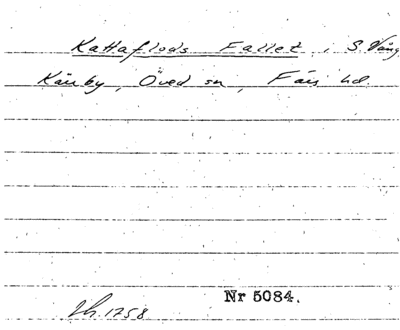 Kattaflods Fallet, S. Vång
Kärby, Öved sn, Färs hd.
Nr 5084.
Zh. 1758